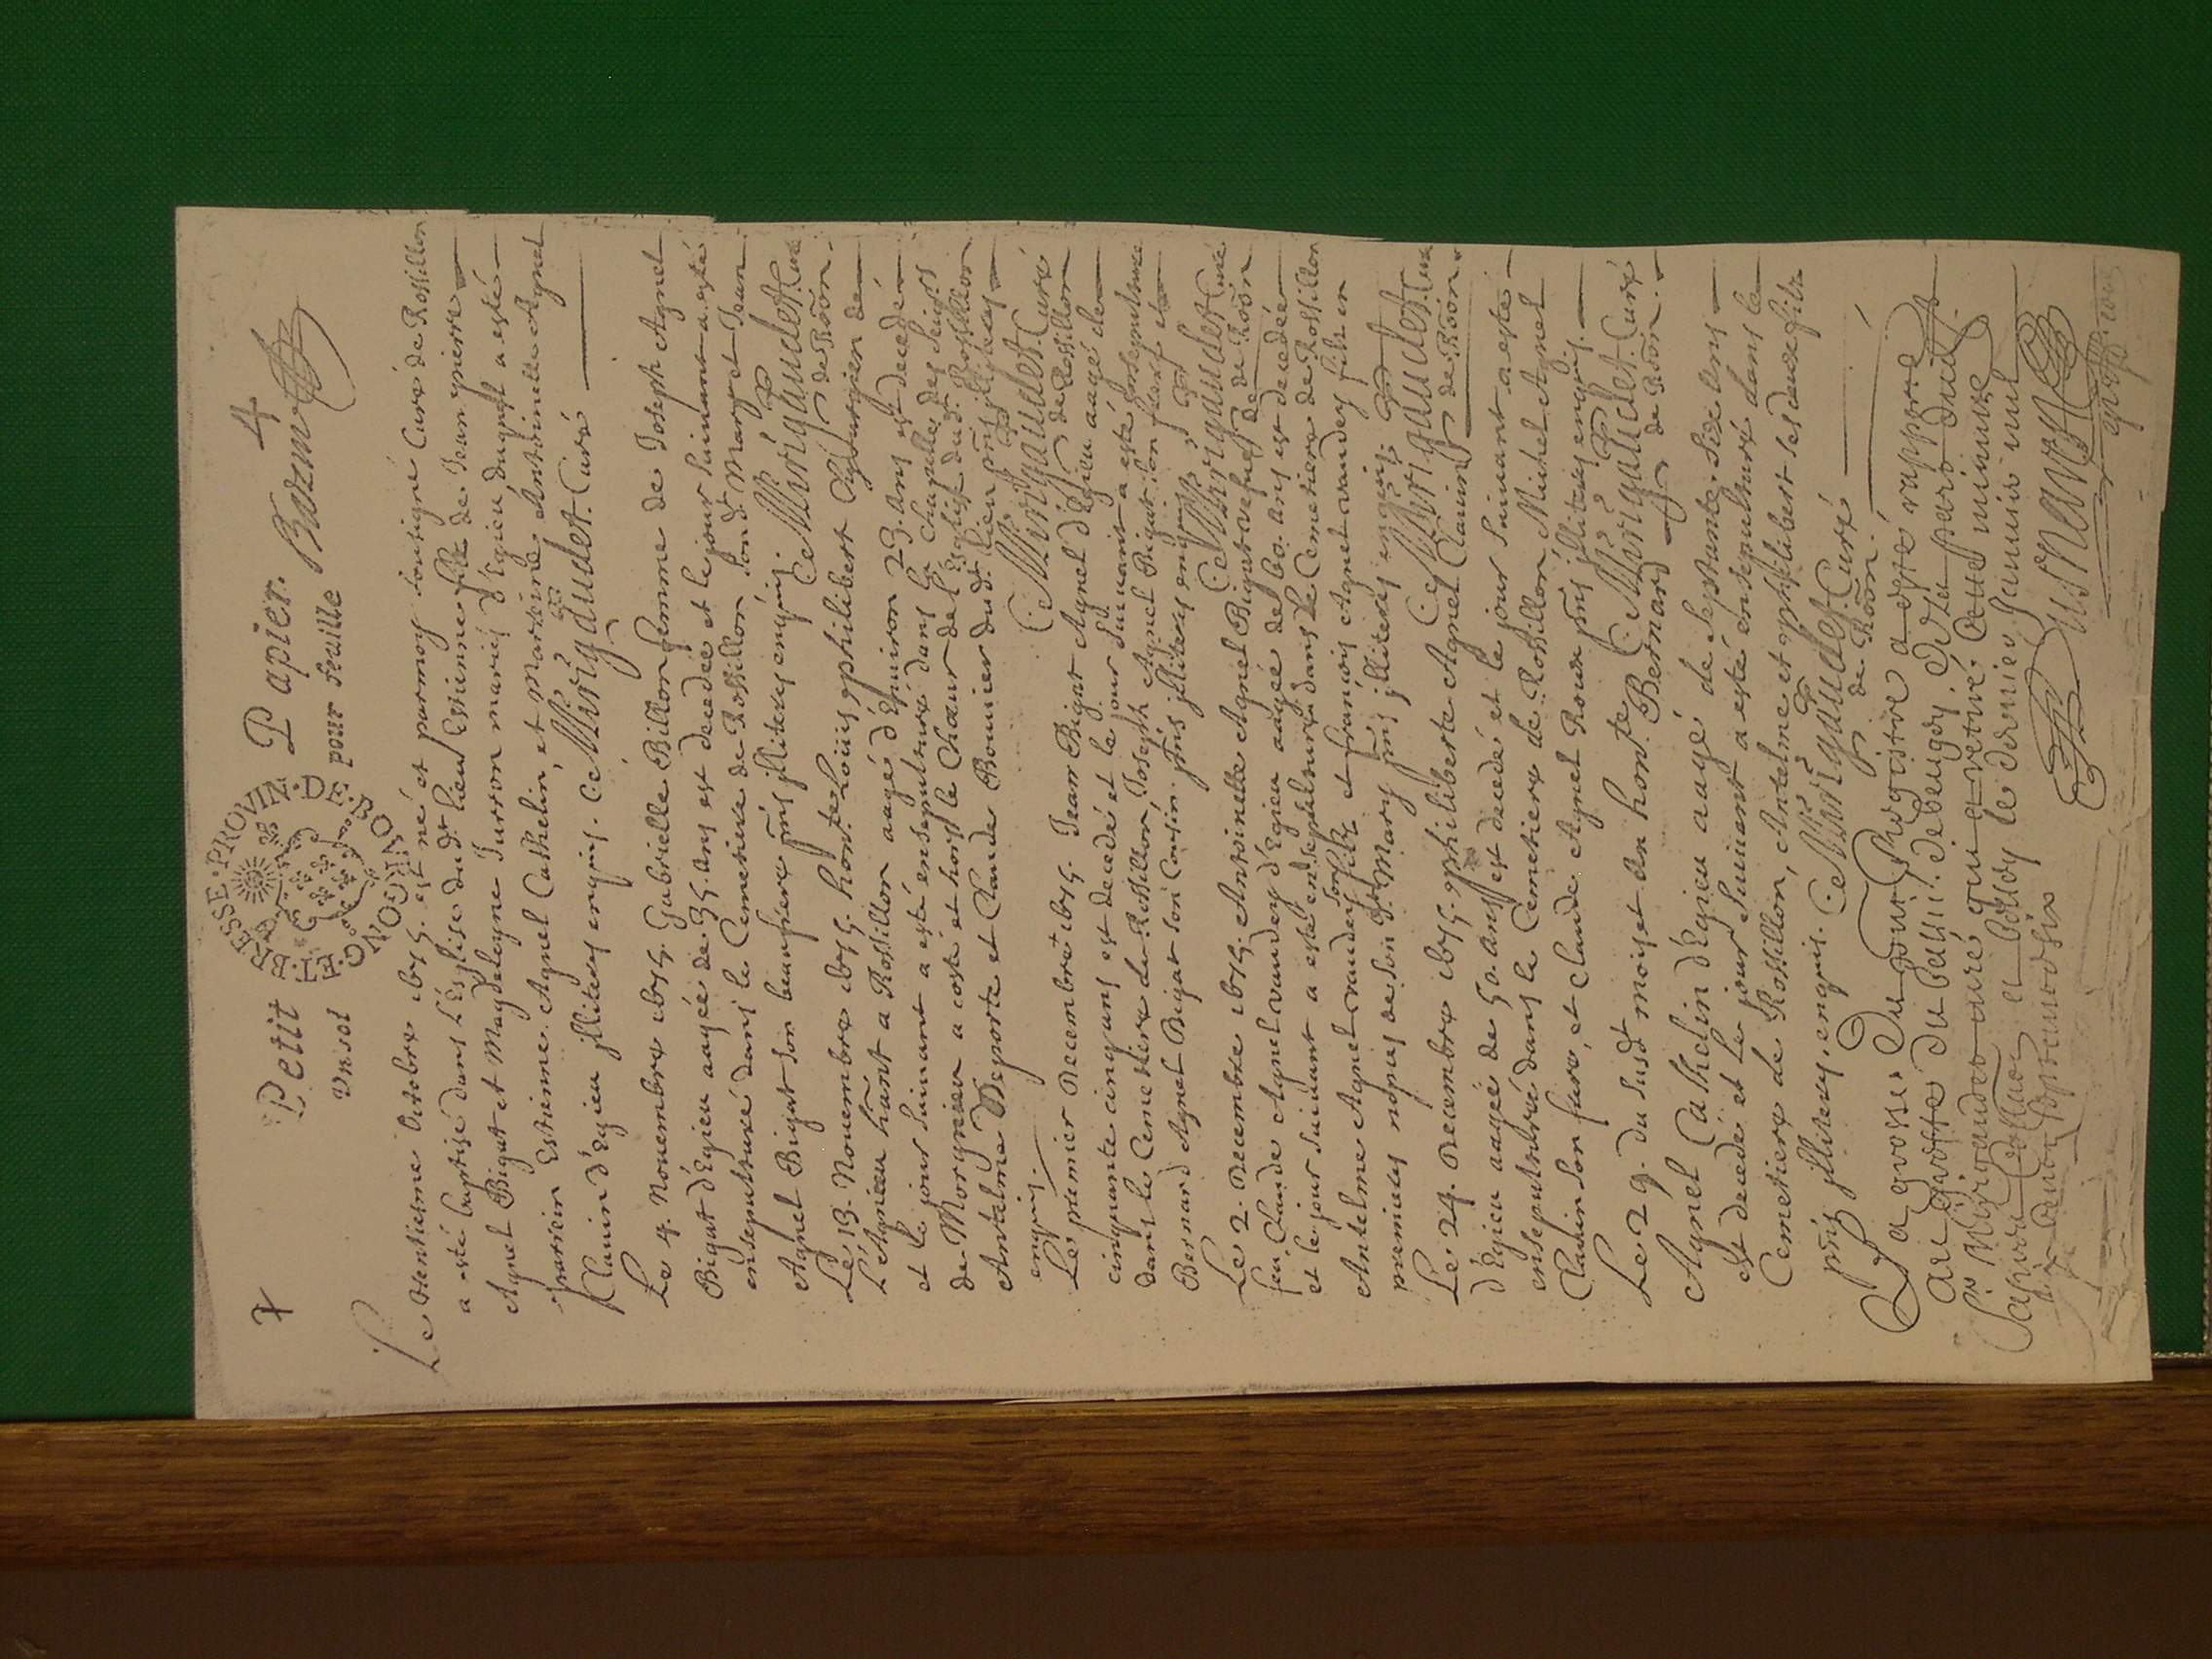 7 Petit Papier. 4
BRESSE · PROVINCE DE BOURGOGNE
Un sol pour feuille
Le trentiesme Octobre 1675. est né et parmoy soubsigné Curé de Rossillon
a esté baptisé dans l'Eglise dudt lieu Estienne fils de Jean pierre
Agnel Bigat et Magdeleyne Jurron mariés d'Egieu, duquel a esté
parrein Estienne Agnel Cathelin, et Marreinle Antoinette Agnel
Clauin d'Egieu illiterés enquis. C. Mirigaudet. Curé
Le 4. Nouembre 1675. Gabrielle Billon femme de Joseph Agnel
Bigat d'Egieu aagée de 35. ans est decedée et le jour suiuant a esté
ensepulturée dans le Cemetiere de Rossillon son d. Mary et Jean
Agnel Bigat son beaufrere pnts illiterés enquis C. Mirigaudet. Curé
de Rossn.
Le 13. Nouembre 1675. honte. Loüis philibert Chirurgien de
L'Agnieu viuant a Rossillon aagé d'Enuiron 23. ans est decedé
et le jour suiuant a esté ensepulturé dans la Chapelle des Seigrs
de Morgnieu a costé et hors le Chœur de l'Eglise dudt. Rossillon
Antelme Deporte et Claude Bouuier dudt. lieu pnts illiterés
enquis C. Mirigaudet. Curé
de Rossillon
Le premier Decembre 1675. Jean Bigat Agnel d'Egieu aagé de
cinquante cinq ans est decedé et le jour suiuant a esté ensepulturé
dans le Cemetiere de Rossillon, Joseph Agnel Bigat son frere et
Bernard Agnel Bigat son Cousin pnts illiterés enquis C. Mirigaudet. Curé
de Rossn
Le 2. Decembre 1675. Antoinette Agnel Bigat vefue de
feu Claude Agnel vaudey d'Egieu aagée de 60. ans est decedée
et le jour suiuant a esté ensepulturée dans le Cemetiere de Rossillon
Antelme Agnel vaudey son fils et francois Agnel vaudey fils en
premieres nopces de son d. Mary pnts illiterés enquis. C. Mirigaudet. Curé
de Rossn.
Le 24. Decembre 1675. philiberte Agnel Clauin
d'Egieu aagée de 50. ans est decedé et le jour suiuant a esté
ensepulturé dans le Cemetiere de Rossillon, Michel Agnel
Clauin son frere, et Claude Agnel Roux pnts illiterés enquis.
C. Mirigaudet. Curé
de Rossn.
Le 29. du susdt mois et an honte Bernard
Agnel Cathelin d'Egieu aagé de septante six ans
est decedé et le jour suiuant a esté ensepulturé dans le
Cemetiere de Rossillon, Antelme et philibert ses deux fils
pnts illiterés, enquis. C. Mirigaudet. Curé
de Rossn.
La grosse du pnt Registre a esté rapporté
au greffe du baill. de beugey
Sr Mirigaudet curé qui a retiré cette minute